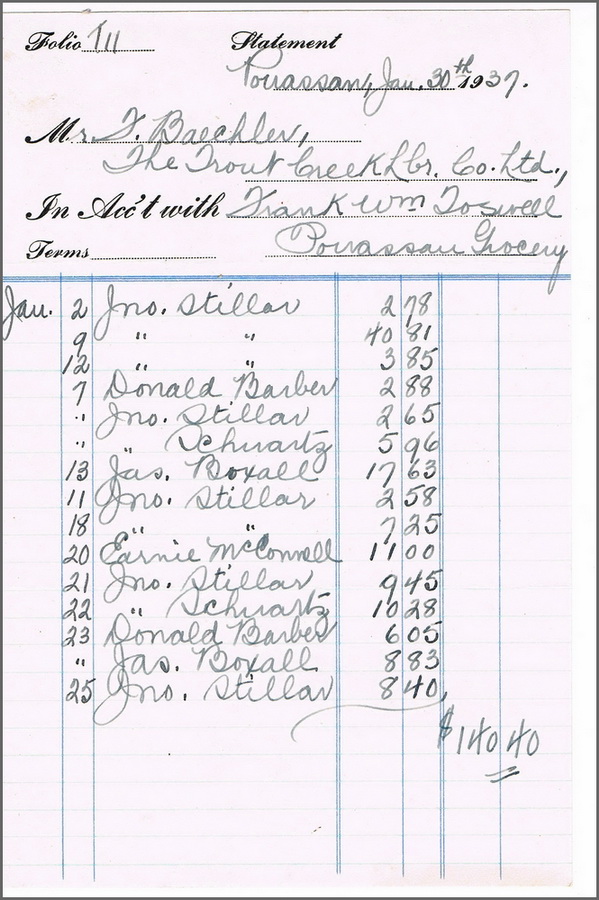 Folio Statement
Powassan, Jan. 30th 1937.
Mr. F. Baechler,
The Trout Creek Lbr. Co. Ltd.,
In Acc't with Frank Wm Toswell
Terms Powassan Grocery
Jan. 2 Jno. Stillar 2 78
9 " " 40 81
12 " " 3 85
7 Donald Barber 2 88
" Jno. Stillar 2 65
" " Schwartz 5 96
13 Jas. Boxall 17 63
11 Jno. Stillar 2 58
18 " " 7 25
20 Earnie McConnell 11 00
21 Jno. Stillar 9 45
22 " Schwartz 10 28
23 Donald Barber 6 05
" Jas. Boxall 8 83
25 Jno. Stillar 8 40
$140 40